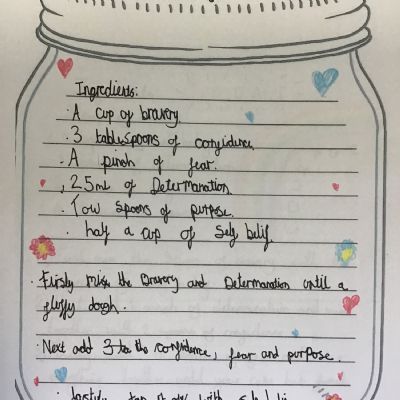 Ingredients:
· A cup of bravery.
· 3 tablespoons of confidence
· A pinch of fear.
· 25ml of Determanation
· Tow spoons of purpose.
· half a cup of self belif.
· Firstly mix the Bravery and Determanation until a
fluffy dough.
· Next add 3 the confidence, fear and purpose.